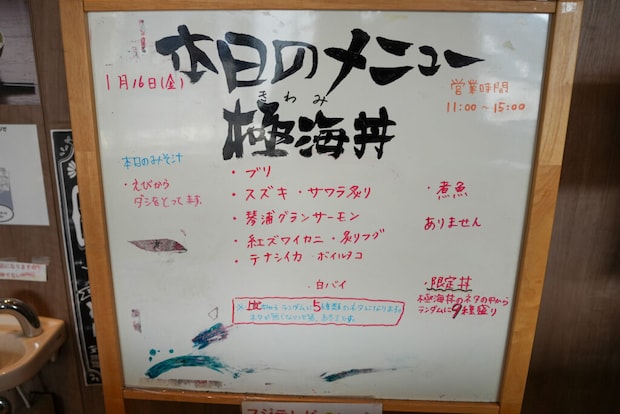 本日のメニュー
1月16日(金)
営業時間
11:00～15:00
きわみ
極海丼
本日のみそ汁
・えびから
ダシをとってます。
・ブリ
・スズキ・サワラ炙り
・琴浦グランサーモン
・紅ズワイカニ・炙りフグ
・テナシイカ・ボイルタコ
・白バイ
・煮魚
ありません
・限定丼
極海丼のネタの中から
ランダムに9種盛り
※ からランダムに5種類